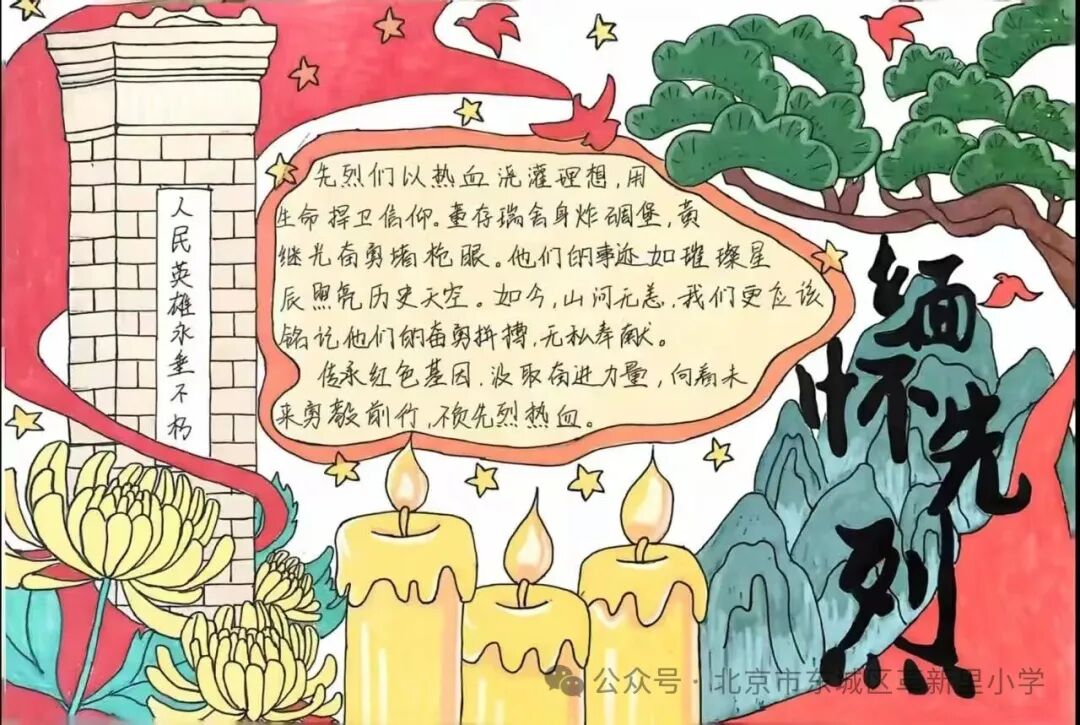 人民英雄永垂不朽
先烈们以热血浇灌理想,用
生命捍卫信仰。董存瑞舍身炸碉堡,黄
继光奋勇堵枪眼。他们的事迹如璀璨星
辰照亮历史天空。如今,山河无恙,我们更应该
铭记他们的奋勇拼搏,无私奉献。
传承红色基因,汲取奋进力量,向着未
来勇毅前行,不负先烈热血。
缅怀先烈
公众号·北京市东城区革新里小学